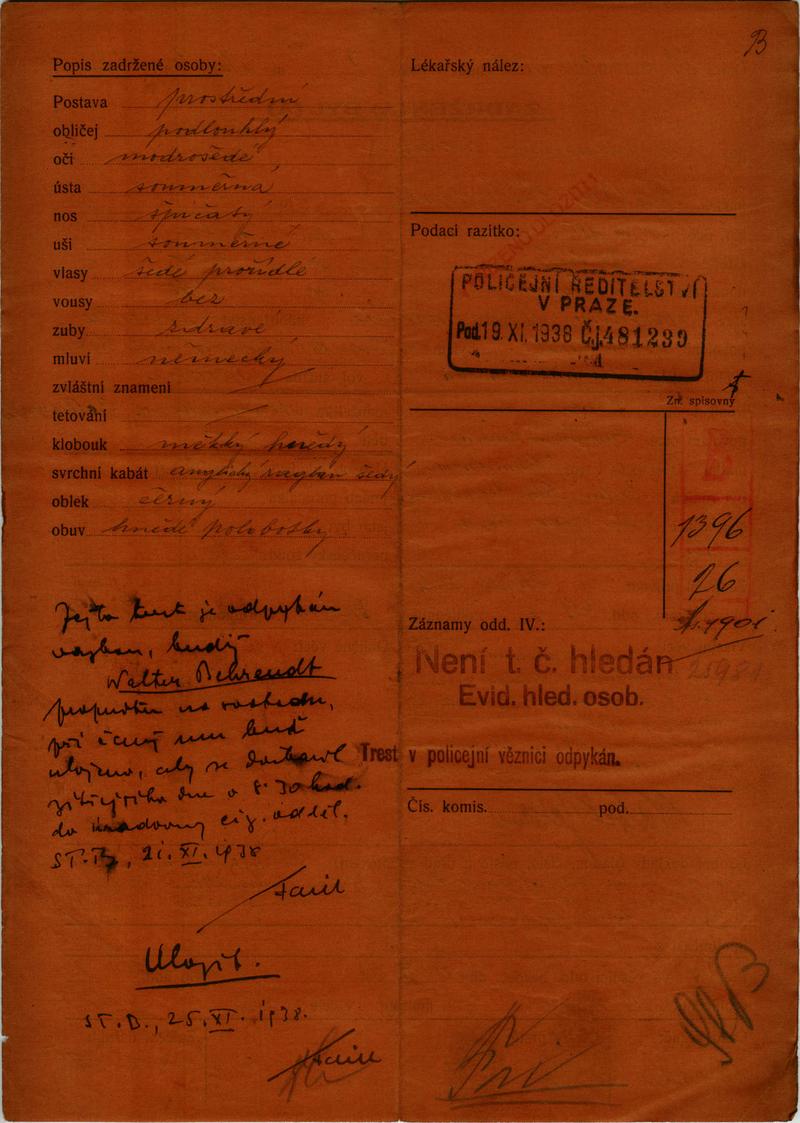 B
Popis zadržené osoby:
Postava prostřední
obličej podlouhlý
oči modrošedé
ústa souměrná
nos špičatý
uši souměrné
vlasy šedé prořídlé
vousy bez
zuby zdravé
mluví německy
zvláštní znamení
tetování
klobouk měkký hnědý
svrchní kabát anglický raglan šedý
oblek černý
obuv hnědé polobotky
Je-li trest je odpykán
vazbou, budiž
Walter Behrendt
propuštěn na svobodu,
při čemž mu buď
uloženo, aby se dostavil
zítřejšího dne o 8:30 hod.
do úřadovny ciz. odděl.
ST.B., 21. XI. 1938
Uložit.
ST.B., 25. XI. 1938.
Lékařský nález:
Podací razítko:
POLICEJNÍ ŘEDITELSTVÍ
V PRAZE.
Pod. 19. XI. 1938 Č.j. 481239
Zn. spisovny
B
1396
26
Záznamy odd. IV.:
Není t. č. hledán
Evid. hled. osob.
Trest v policejní věznici odpykán.
Čís. komis. pod.